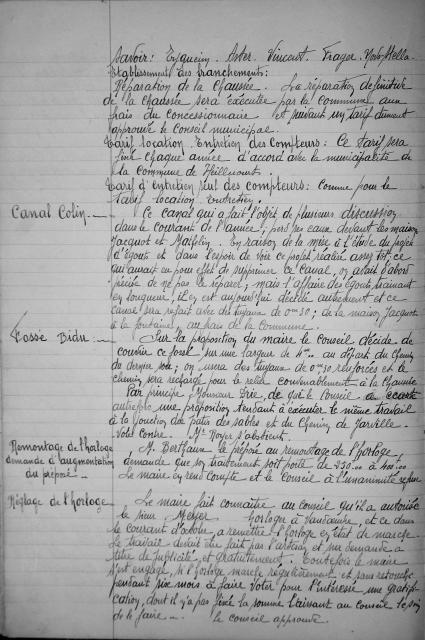 Savoir: Enguein. Aster. Vincent. Frager.
Etablissement des branchements:
Réparation de la Chaussée. La réparation définitive
de la Chaussée sera exécutée par la commune aux
frais du concessionnaire et suivant un tarif dûment
approuvé le conseil municipal.
Tarif location Entretien des Compteurs: Ce tarif sera
fixé chaque année d'accord avec la municipalité de
la commune de Heillecourt.
Tarif d'entretien seul des compteurs: comme pour le
tarif location entretien.
Canal Colin. Ce canal qui a fait l'objet de plusieurs discussions
dans le courant de l'année; perd ses eaux devant les maisons
Jacquot et. En raison de la mise à l'étude du projet
d'égouts et dans l'espoir de voir ce projet réalisé assez tôt, ce
qui aurait eu pour effet de supprimer ce canal, on avait d'abord
décidé de ne pas le réparer; mais l'affaire des égouts traînant
en longueur, il en est aujourd'hui décidé autrement et ce
canal sera refait avec des tuyaux de 0m30; de la maison Jacquot
à la fontaine, au frais de la commune.
Fossé Bidu: Sur la proposition du maire le conseil décide de
couvrir ce fossé sur une largeur de au départ du chemin
du dernier; on usera des tuyaux de 0m30 renforcés et le
chemin sera rechargé pour le relier convenablement à la Chaussée
Par principe Monsieur, de que le Conseil a écarté
autrefois une proposition tendant à exécuter le même travail
à la jonction des et du Chemin de Jarville.
Vote contre. Mr Noyer s'abstient.
Remontage de l'horloge
demande d'augmentation
du préposé
M. Berthaux le préposé au remontage de l'horloge,
demande que son traitement soit porté de à
Le maire en rend compte et le Conseil à l'unanimité refuse
Réglage de l'horloge. Le maire fait connaître au conseil qu'il a autorisé
le sieur horloger à Vandœuvre, et ce dans
le courant d'octobre, à remettre l'horloge en état de marche.
Le travail devait être fait par l'artisan et sur demande à
titre de publicité, et gratuitement. Toutefois le maire
s'est engagé, si l'horloge marche régulièrement et sans retouche
pendant six mois à faire voter pour l'intéressé une gratifi-
cation, dont il n'a pas fixé la somme laissant au conseil le soin
de le faire. le conseil approuve.